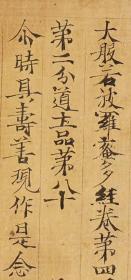 大般若波羅蜜多經卷第四
第二分道士品第八十
尒時具壽善現作是念